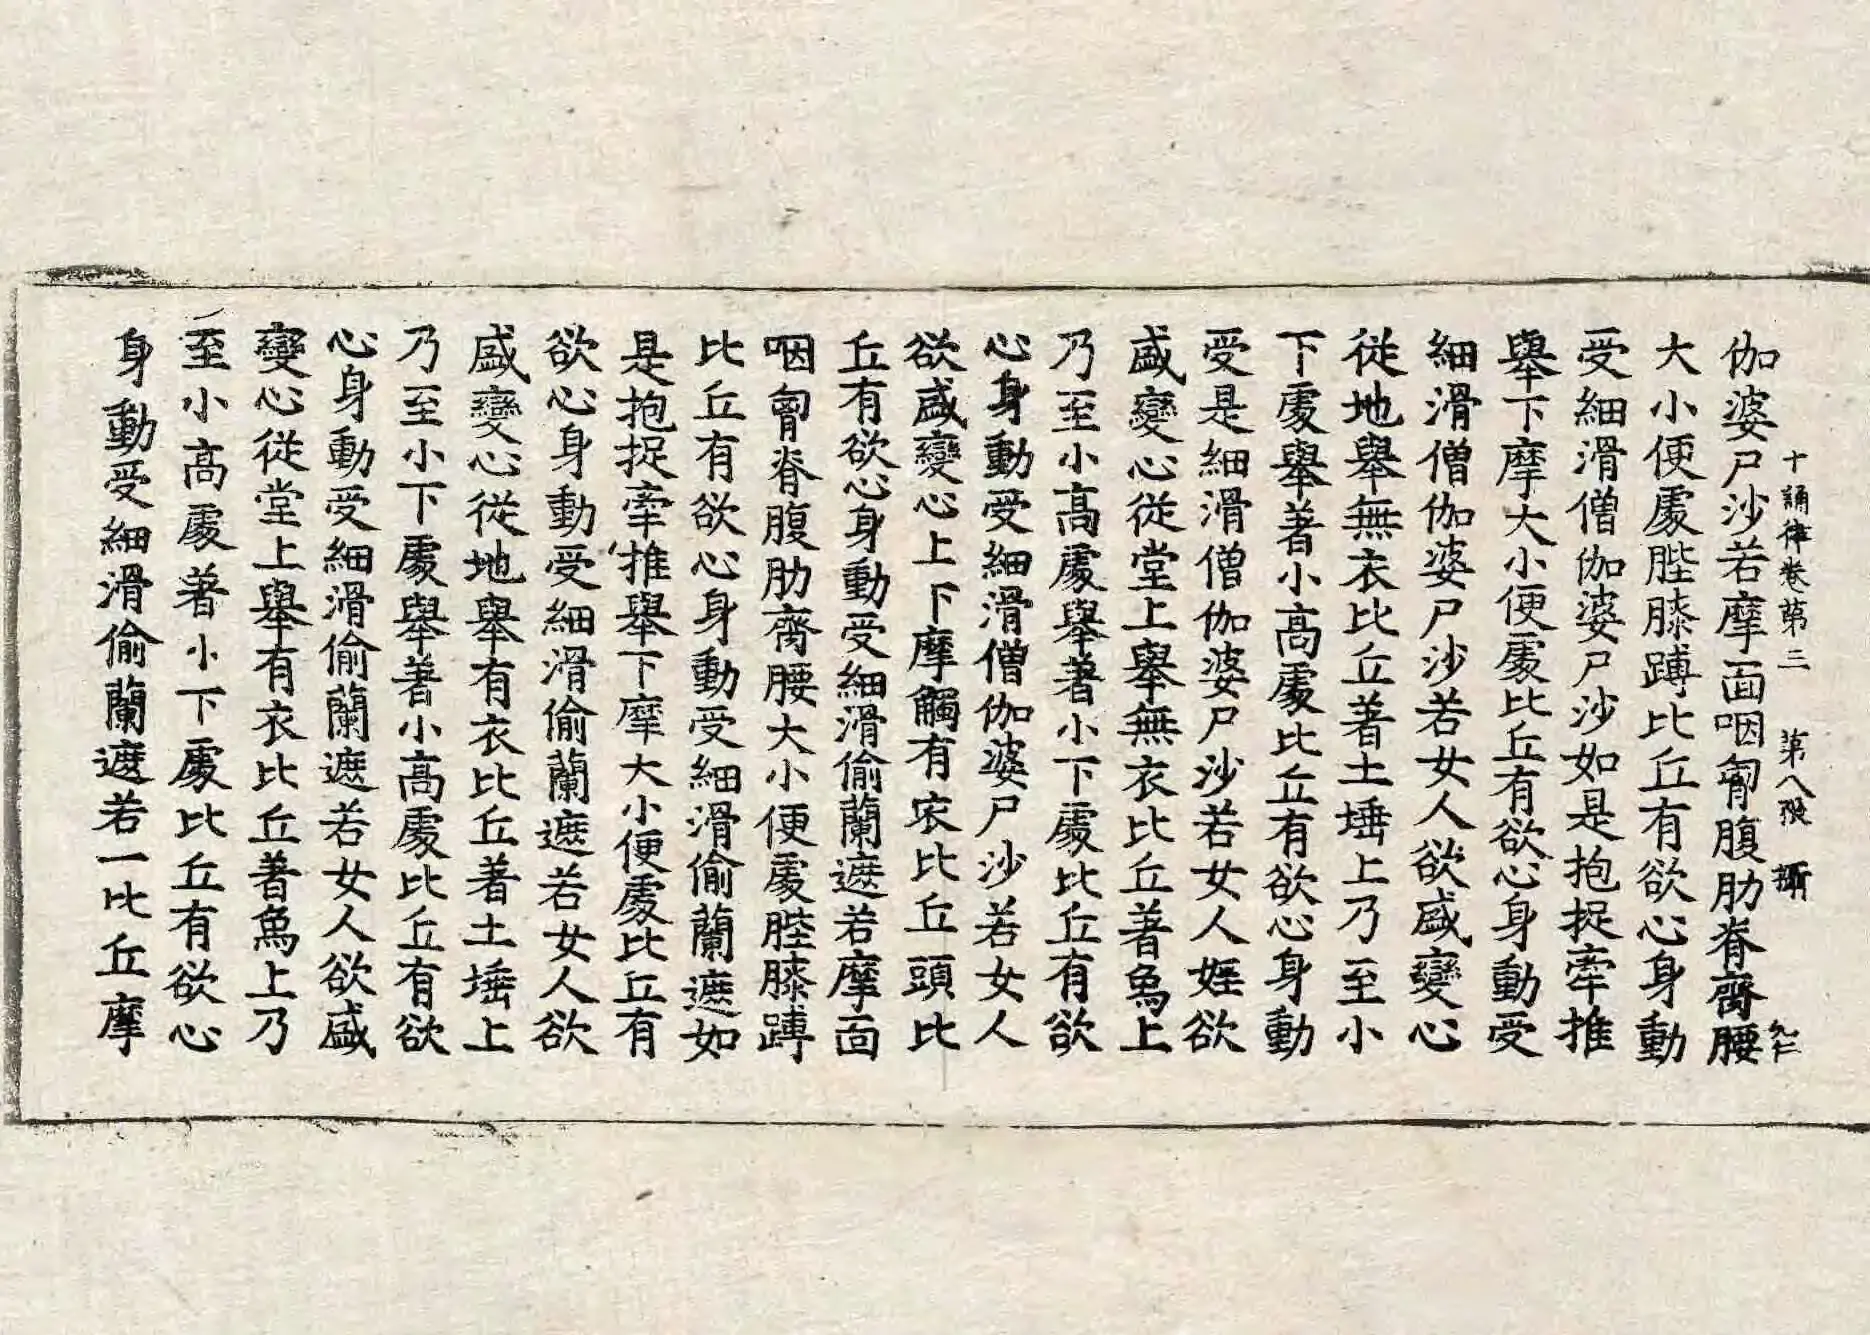 十誦律卷第三　第八張　攝　
伽婆尸沙若摩面咽匈腹肋脊齊腰
大小便處䏶膝蹲比丘有欲心身動
受細滑僧伽婆尸沙如是抱捉牽推
舉下摩大小便處比丘有欲心身動受
細滑僧伽婆尸沙若女人欲盛變心
從地舉無衣比丘著土埵上乃至小
下處舉著小高處比丘有欲心身動
受是細滑僧伽婆尸沙若女人婬欲
盛變心從堂上舉無衣比丘著象上
乃至小高處舉著小下處比丘有欲
心身動受細滑僧伽婆尸沙若女人
欲盛變心上下摩觸有衣比丘頭比
丘有欲心身動受細滑偷蘭遮若摩面
咽匈脊腹肋齊腰大小便處䏶膝蹲
比丘有欲心身動受細滑偷蘭遮如
是抱捉牽推舉下摩大小便處比丘有
欲心身動受細滑偷蘭遮若女人欲
盛變心從地舉有衣比丘著土埵上
乃至小下處舉著小高處比丘有欲
心身動受細滑偷蘭遮若女人欲盛
變心從堂上舉有衣比丘著象上乃
至小高處著小下處比丘有欲心
身動受細滑偷蘭遮若一比丘摩